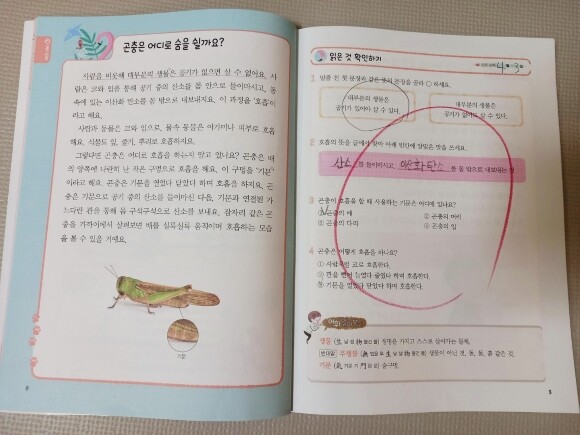 곤충은 어디로 숨을 쉴까요?
사람을 비롯해 대부분의 생물은 공기가 없으면 살 수 없어요. 사
람은 코와 입을 통해 공기 중의 산소를 몸 안으로 들이마시고, 몸
속에 있는 이산화 탄소를 몸 밖으로 내보내지요. 이 과정을 '호흡'이
라고 해요.
사람과 동물은 코와 입으로, 물속 동물은 아가미나 피부로 호흡
해요. 식물도 잎, 줄기, 뿌리로 호흡하지요.
그렇다면 곤충은 어디로 호흡을 하는지 알고 있나요? 곤충은 배
의 양쪽에 나란히 난 작은 구멍으로 호흡을 해요. 이 구멍을 '기문'
이라고 해요. 곤충은 기문을 열었다 닫았다 하며 호흡을 하지요. 곤
충은 기문으로 공기 중의 산소를 들이마신 다음, 기문과 연결된 가
느다란 관을 통해 몸 구석구석으로 산소를 보내요. 잠자리 같은 곤
충을 가까이에서 살펴보면 배를 실룩실룩 움직이며 호흡하는 모습
을 볼 수 있을 거예요.
기문
8
읽은 것 확인하기
1 밑줄 친 첫 문장과 같은 뜻의 문장을 골라 ○ 하세요.
대부분의 생물은
공기가 있어야 살 수 있다.
대부분의 생물은
공기가 없어도 살 수 있다.
2 호흡의 뜻을 글에서 찾아 아래 빈칸에 알맞은 말을 쓰세요.
산소를 들이마시고 이산화탄소를 몸 밖으로 내보내는 것
3 곤충이 호흡을 할 때 사용하는 기문은 어디에 있나요?
① 곤충의 배 ② 곤충의 머리
③ 곤충의 다리 ④ 곤충의 입
4 곤충은 어떻게 호흡을 하나요?
① 사람처럼 코로 호흡한다.
② 관을 늘였다 줄였다 하며 호흡한다.
③ 기문을 열었다 닫았다 하며 호흡한다.
생물 생명을 가지고 스스로 살아가는 동물,
반대말 무생물 생물이 아닌 것. 돌, 물, 흙 같은 것.
기문 숨구멍.